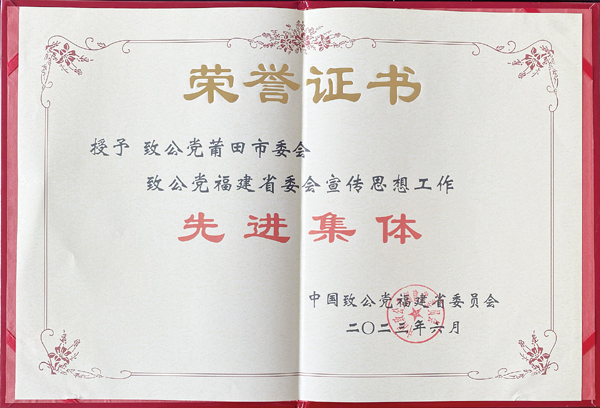 荣誉证书
授予 致公党莆田市委会
致公党福建省委会宣传思想工作
先进集体
中国致公党福建省委员会
二〇二三年六月